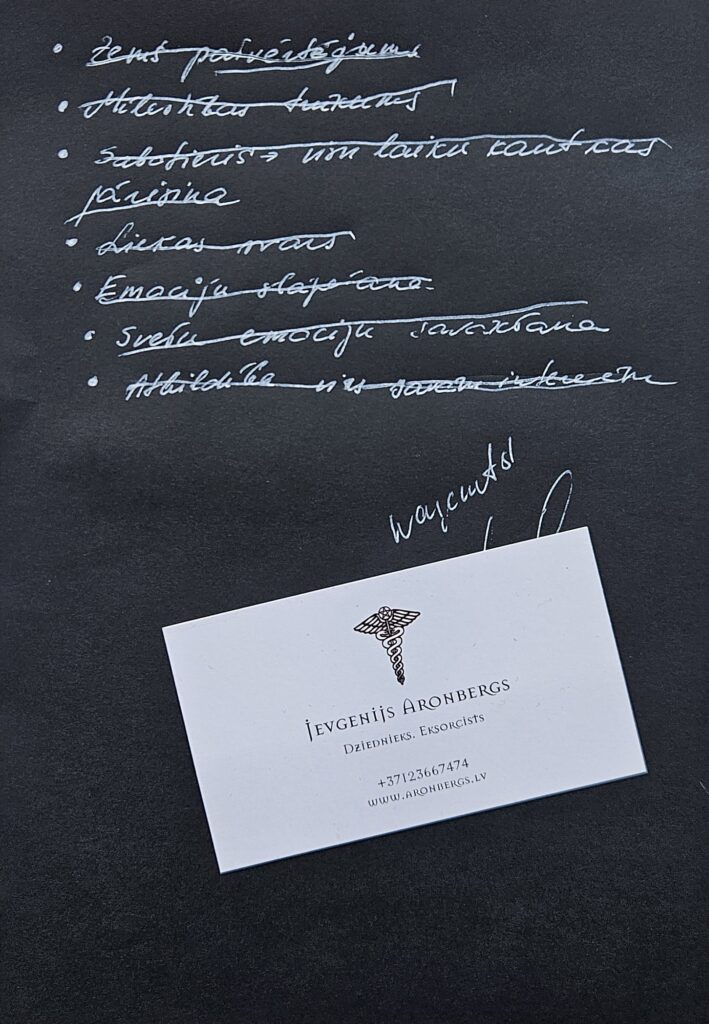 Zems pašvērtējums
Mīlestības trūkums
Sabotieris → visu laiku kaut kas
pārisina
Liekas svars
Emociju slāpēšana
Svešu emociju savākšana
Atbildība virs savām interesēm
Jevgenijs Aronbergs
Dziednieks. Eksorcists
+37123667474
www.aronbergs.lv